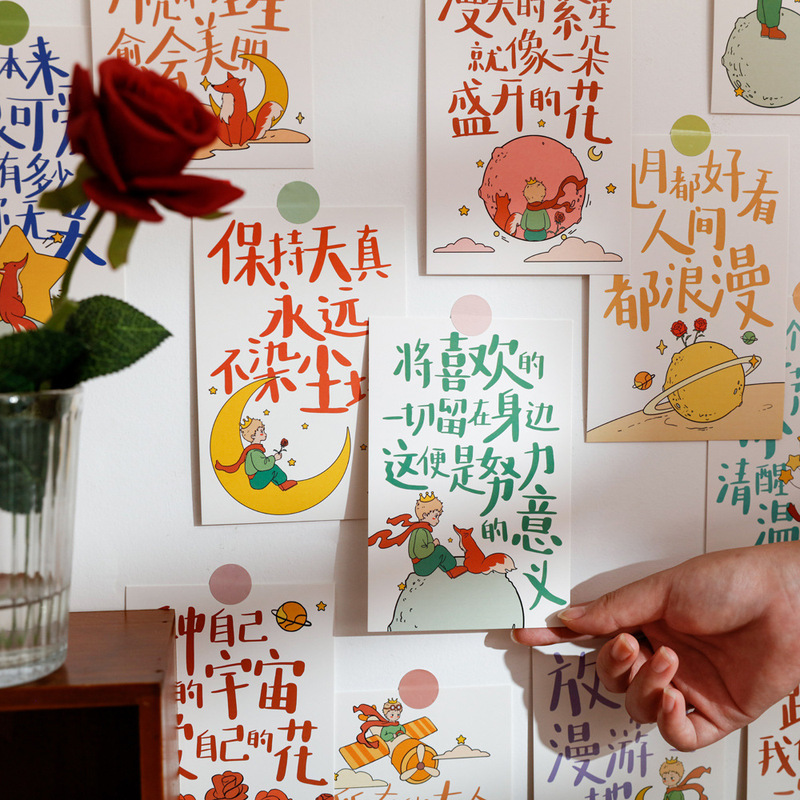 本来
可爱
有多少
愈会美丽
漫天的繁星
就像一朵
盛开的花
保持天真
永远
不染尘土
将喜欢的
一切留在身边
这便是努力
的意义
月都好看
人间
都浪漫
清醒
温
自己
的宇宙
自己的花
放
漫游
我